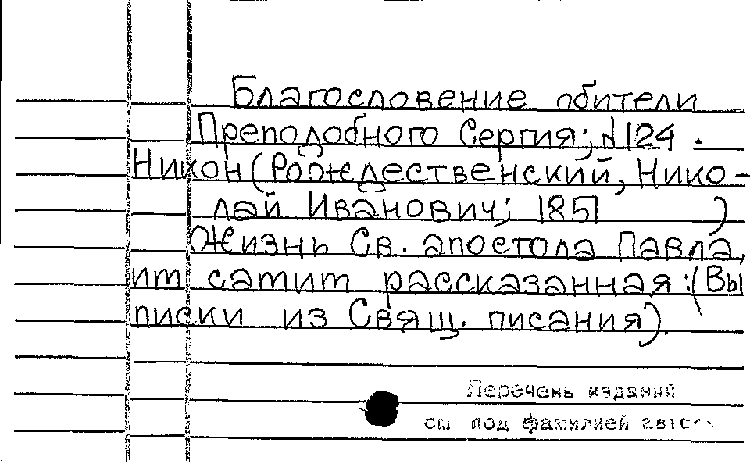 Благословение обители
Преподобного Сергия; №124.
Никон (Рождественский, Нико-
лай Иванович; 1851 )
Жизнь Св. апостола Павла,
им самим рассказанная: (Вы
писки из Свящ. писания).
Перечень изданий
см под фамилией